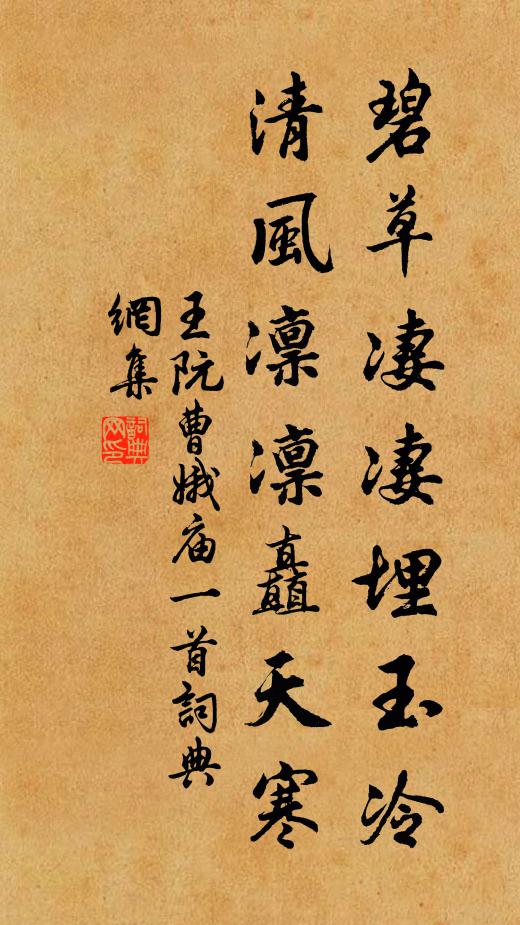 碧草凄凄埋玉冷
清風凛凛矗天寒
王阮曹娥庙一首詞典
網集
詞典
网印